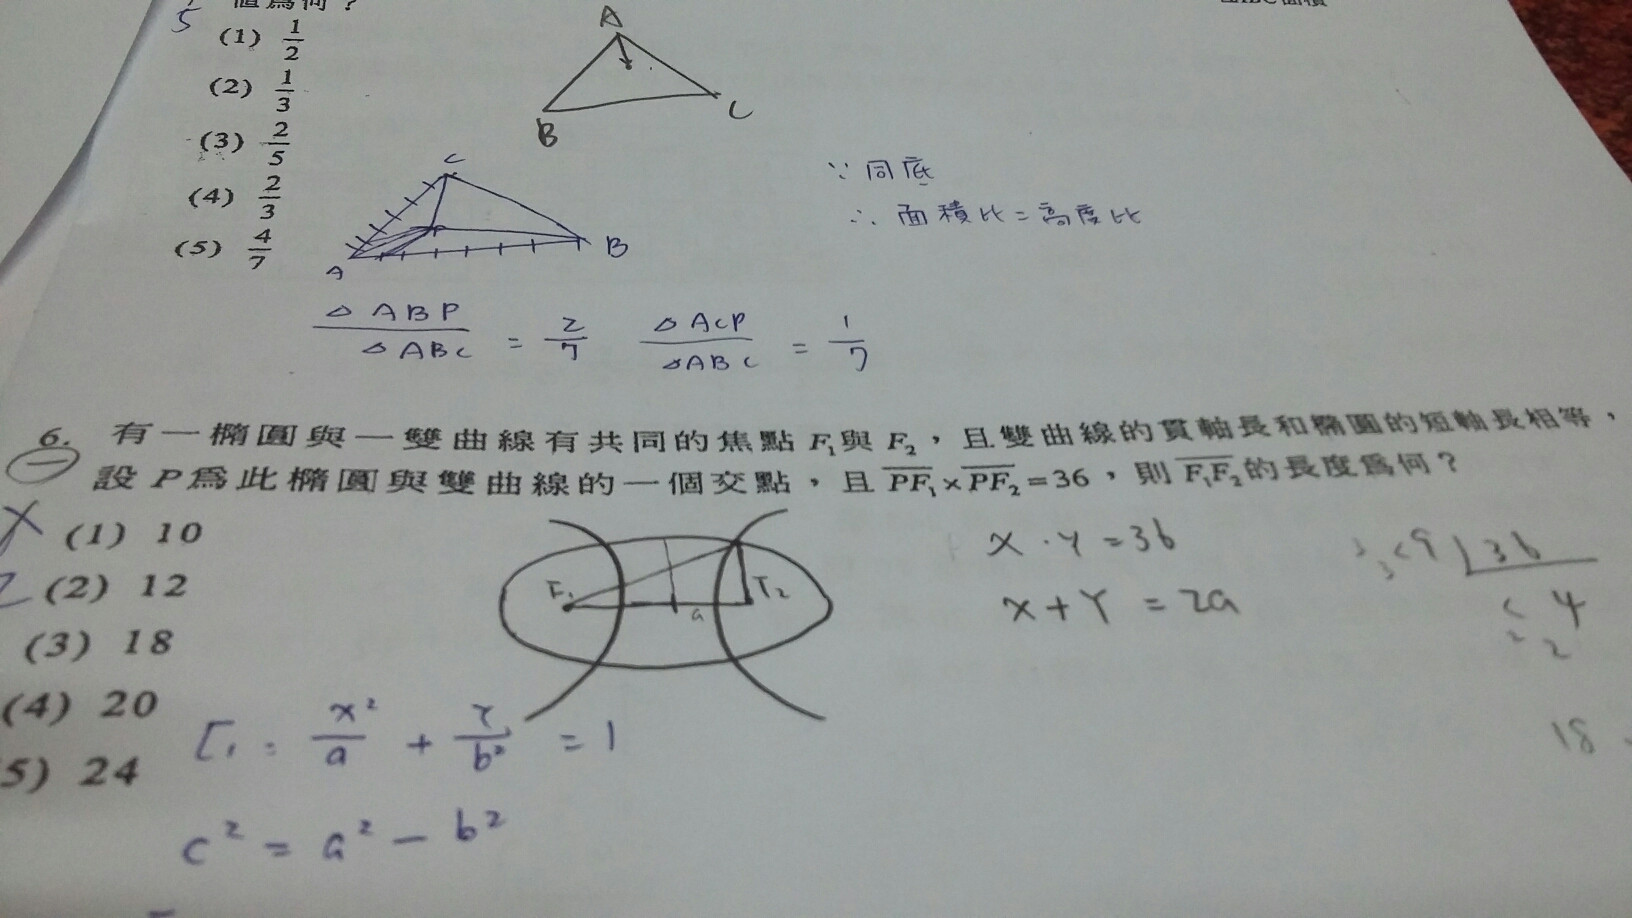 值為何？
5
(1) 1/2
(2) 1/3
(3) 2/5
(4) 2/3
(5) 4/7
A
B
C
C
A
B
∵ 同底
∴ 面積比 = 高度比
△ABP/△ABC = 2/7 △ACP/△ABC = 1/7
6. 有一橢圓與一雙曲線有共同的焦點 F₁與 F₂，且雙曲線的貫軸長和橢圓的短軸長相等，
設 P 為此橢圓與雙曲線的一個交點，且 PF₁×PF₂=36，則 F₁F₂的長度為何？
(1) 10
(2) 12
(3) 18
(4) 20
5) 24
F₁
F₂
a
x · y = 36
x + y = 2a
9 36
4
2
18
Γ₁ : x²/a + y/b² = 1
c² = a² - b²